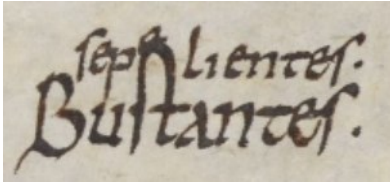 sepelientes.
Bustantes.